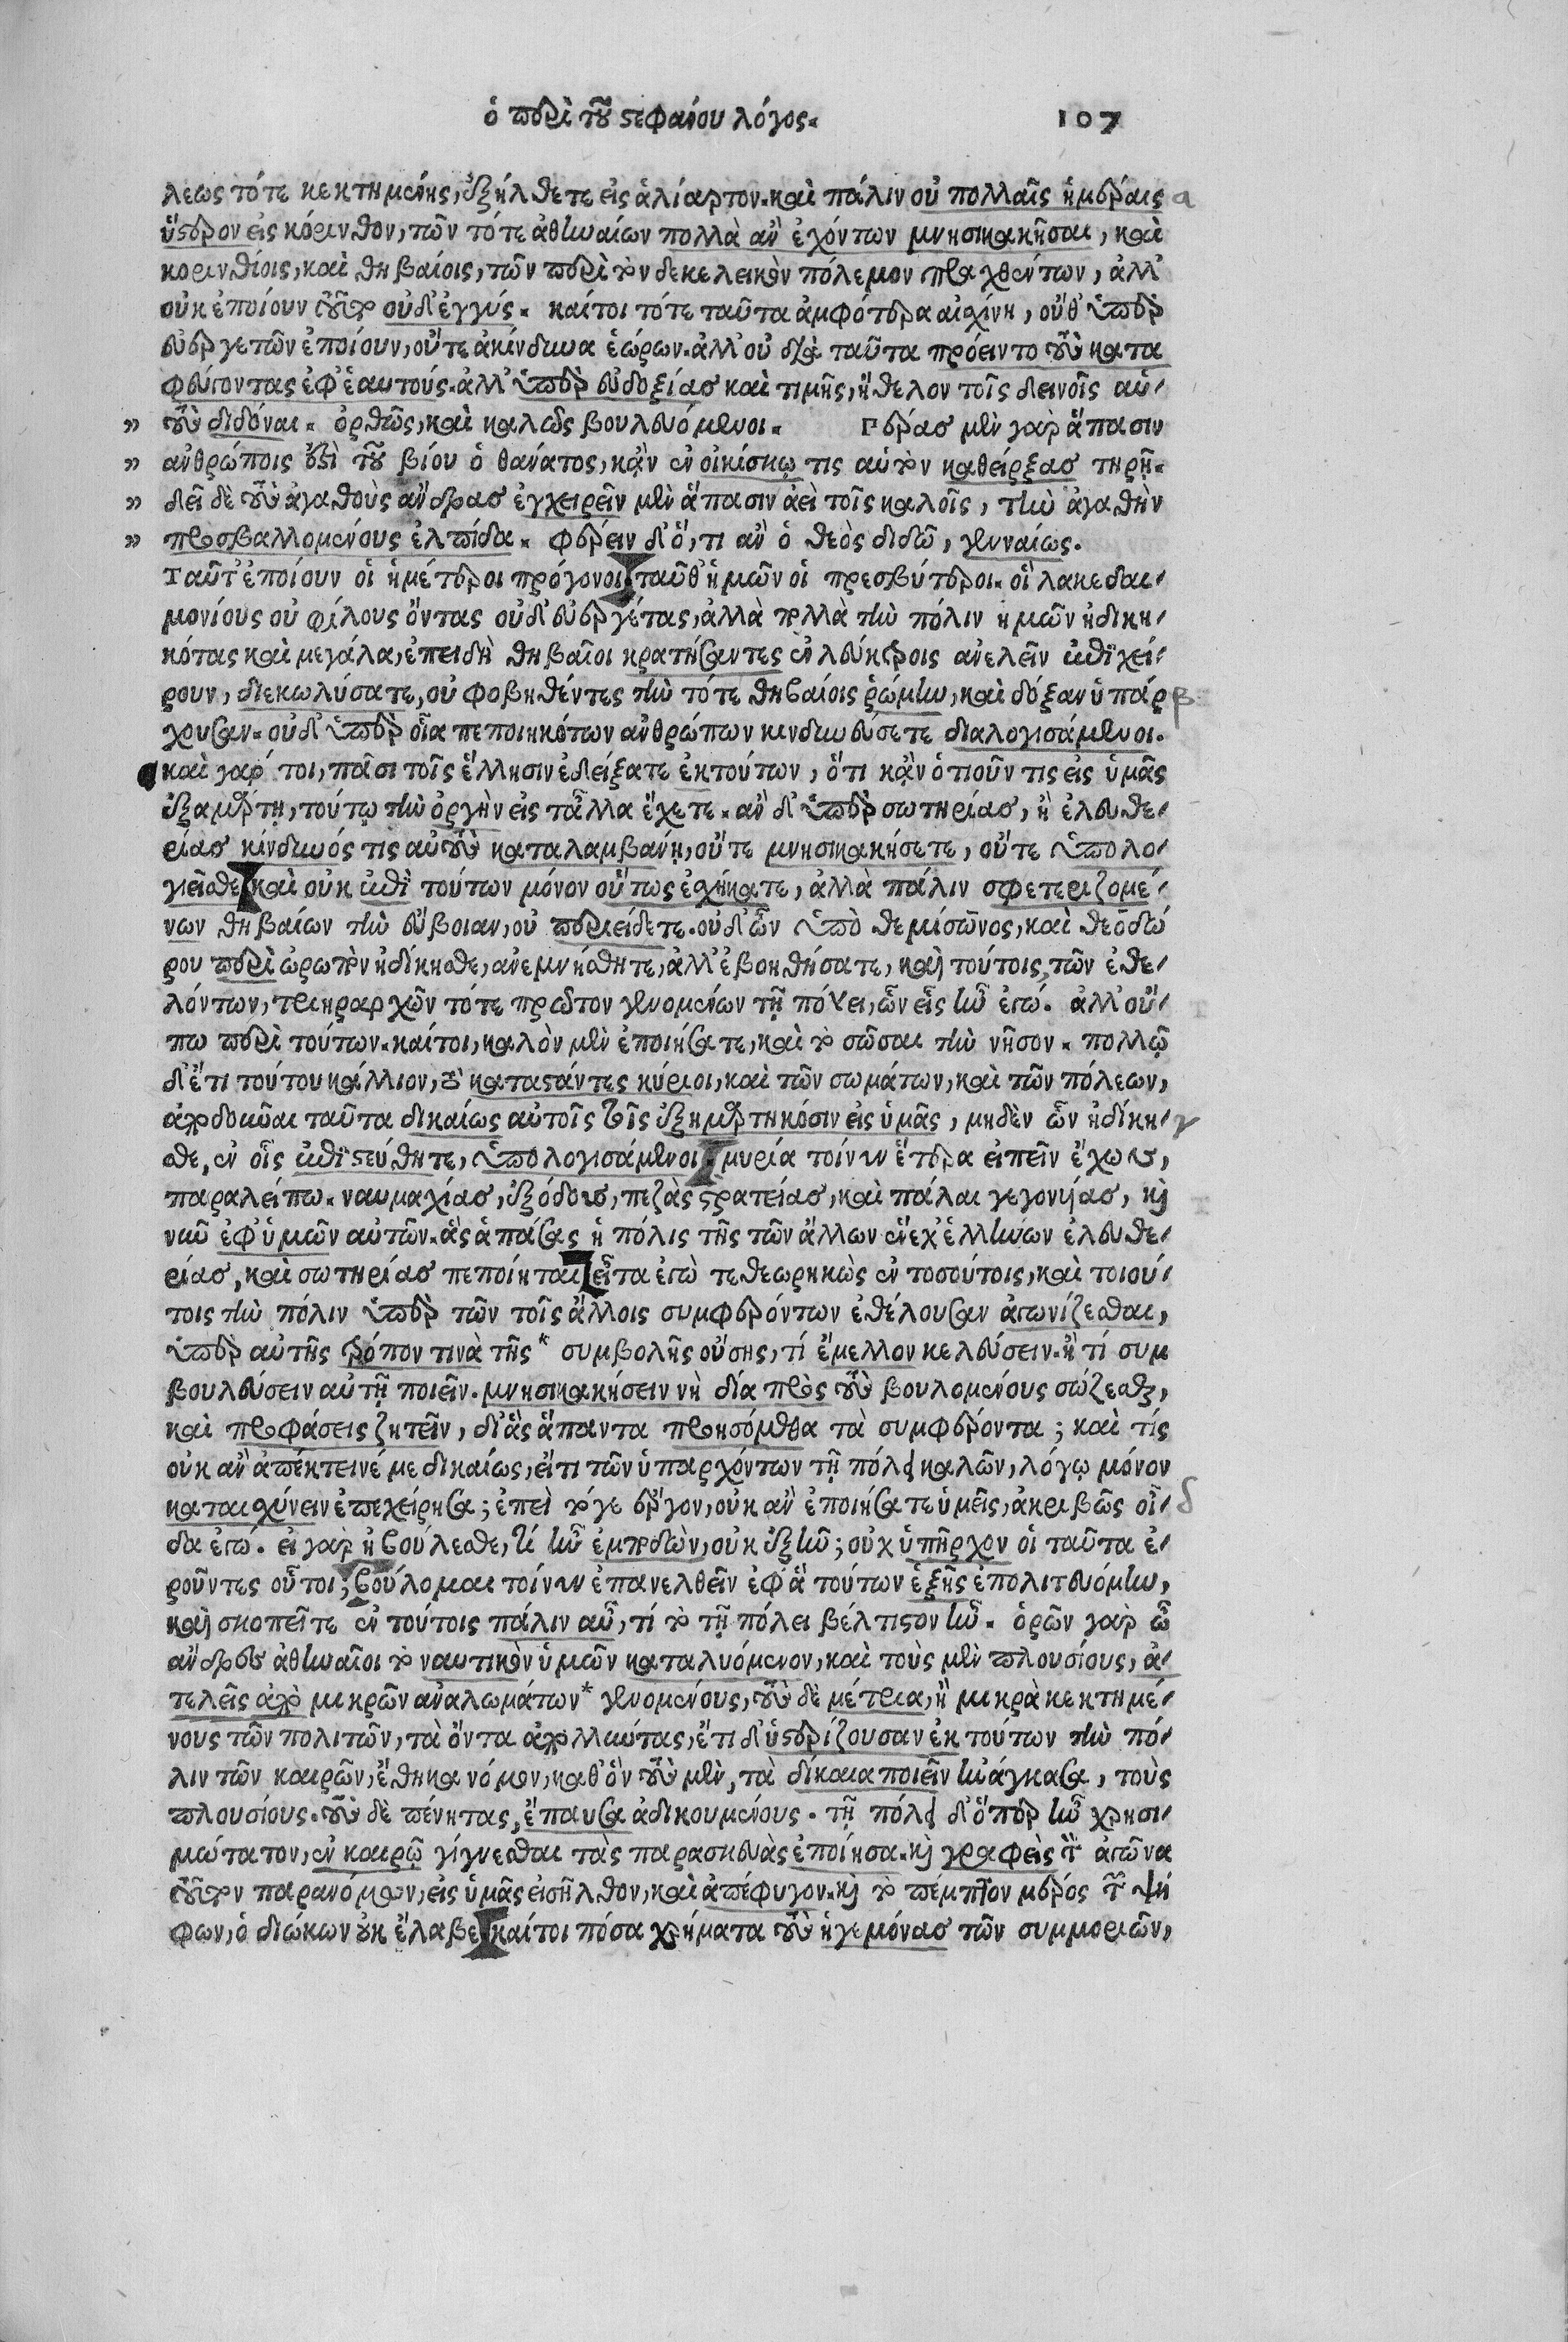 ὁ περὶ τοῦ στεφάνου λόγος. 107
λεως τότε κεκτημένης, ἐξήλθετε εἰς ἁλίαρτον. καὶ πάλιν οὐ πολλαῖς ἡμέραις α
ὕστερον εἰς κόρινθον, τῶν τότε ἀθηναίων πολλὰ ἂν ἐχόντων μνησικακῆσαι, καὶ
κορινθίοις, καὶ θηβαίοις, τῶν περὶ τὸν δεκελεικὸν πόλεμον πραχθέντων, ἀλλ'
οὐκ ἐποίουν τοῦτο οὐδ' ἐγγύς. καίτοι τότε ταῦτα ἀμφότερα αἰσχίνη, οὔθ' ὑπὲρ
εὐεργετῶν ἐποίουν, οὔτε ἀκίνδυνα ἑώρων. ἀλλ' οὐ διὰ ταῦτα πρόειντο τοὺς κατα
φεύγοντας ἐφ' ἑαυτούς. ἀλλ' ὑπὲρ εὐδοξίας καὶ τιμῆς, ἤθελον τοῖς δεινοῖς αὑ-
„ τοὺς διδόναι. ὀρθῶς, καὶ καλῶς βουλευόμενοι. Πέρας μὲν γὰρ ἅπασιν
„ ἀνθρώποις ἐστὶ τοῦ βίου ὁ θάνατος, κἂν ἐν οἰκίσκῳ τις αὑτὸν καθείρξας τηρῇ.
„ δεῖ δὲ τοὺς ἀγαθοὺς ἄνδρας ἐγχειρεῖν μὲν ἅπασιν ἀεὶ τοῖς καλοῖς, τὴν ἀγαθὴν
„ προσβαλλομένους ἐλπίδα. φέρειν δ' ὅ,τι ἂν ὁ θεὸς διδῶ, γενναίως.
Ταῦτ' ἐποίουν οἱ ἡμέτεροι πρόγονοι ταῦθ' ἡμῶν οἱ πρεσβύτεροι. οἳ λακεδαι-
μονίους οὐ φίλους ὄντας οὐδ' εὐεργέτας, ἀλλὰ πολλὰ τὴν πόλιν ἡμῶν ἠδικη-
κότας καὶ μεγάλα, ἐπειδὴ θηβαῖοι κρατήσαντες ἐν λεύκτροις ἀνελεῖν ἐπεχεί-
ρουν, διεκωλύσατε, οὐ φοβηθέντες τὴν τότε θηβαίοις ῥώμην, καὶ δόξαν ὑπάρ β
χουσαν. οὐδ' ὑπὲρ οἷα πεποιηκότων ἀνθρώπων κινδυνεύσετε διαλογισάμενοι.
καὶ γάρ τοι, πᾶσι τοῖς ἕλλησιν ἐδείξατε ἐκ τούτων, ὅτι κἂν ὁτιοῦν τις εἰς ὑμᾶς
ἐξαμάρτῃ, τούτῳ τὴν ὀργὴν εἰς τἄλλα ἔχετε. ἂν δ' ὑπὲρ σωτηρίας, ἢ ἐλευθε-
ρίας κίνδυνός τις αὐτοὺς καταλαμβάνῃ, οὔτε μνησικακήσετε, οὔτε ὑπολο-
γιεῖσθε καὶ οὐκ ἐπὶ τούτων μόνον οὕτως ἐσχήκατε, ἀλλὰ πάλιν σφετεριζομέ-
νων θηβαίων τὴν εὔβοιαν, οὐ περιείδετε. οὐδ' ὧν ὑπὸ θεμίσωνος, καὶ θεοδώ
ρου περὶ ὠρωπὸν ἠδίκησθε, ἀνεμνήσθητε, ἀλλ' ἐβοηθήσατε, καὶ τούτοις, τῶν ἐθε-
λόντων, τριηραρχῶν τότε πρῶτον γενομένων τῇ πόλει, ὧν εἷς ἦν ἐγώ. ἀλλ' οὔ-
πω περὶ τούτων. καίτοι, καλὸν μὲν ἐποιήσατε, καὶ τὸ σῶσαι τὴν νῆσον. πολλῷ
δ' ἔτι τούτου κάλλιον, τὸ καταστάντες κύριοι, καὶ τῶν σωμάτων, καὶ τῶν πόλεων,
ἀποδοῦναι ταῦτα δικαίως αὐτοῖς τοῖς ἐξημαρτηκόσιν εἰς ὑμᾶς, μηδὲν ὧν ἠδίκη- γ
σθε, ἐν οἷς ἐπιστεύθητε, ὑπολογισάμενοι. μυρία τοίνυν ἕτερα εἰπεῖν ἔχων,
παραλείπω. ναυμαχίας, ἐξόδους, πεζὰς στρατείας, καὶ πάλαι γεγονυίας, καὶ
νῦν ἐφ' ὑμῶν αὐτῶν. ἃς ἁπάσας ἡ πόλις τῆς τῶν ἄλλων ἕνεχ' ἑλλήνων ἐλευθε-
ρίας, καὶ σωτηρίας πεποίηται εἶτα ἐγὼ τεθεωρηκὼς ἐν τοσούτοις, καὶ τοιού-
τοις τὴν πόλιν ὑπὲρ τῶν τοῖς ἄλλοις συμφερόντων ἐθέλουσαν ἀγωνίζεσθαι,
ὑπὲρ αὐτῆς τρόπον τινὰ τῆς* συμβολῆς οὔσης, τί ἔμελλον κελεύσειν. ἢ τί συμ
βουλεύσειν αὐτῇ ποιεῖν. μνησικακήσειν νὴ δία πρὸς τοὺς βουλομένους σώζεσθαι,
καὶ προφάσεις ζητεῖν, δι' ἃς ἅπαντα προησόμεθα τὰ συμφέροντα; καὶ τίς
οὐκ ἂν ἀπέκτεινέ με δικαίως, εἴ τι τῶν ὑπαρχόντων τῇ πόλει καλῶν, λόγῳ μόνον
καταισχύνειν ἐπεχείρησα; ἐπεὶ τό γε ἔργον, οὐκ ἂν ἐποιήσατε ὑμεῖς, ἀκριβῶς οἶ- δ
δα ἐγώ. εἰ γὰρ ἠβούλεσθε, τί ἦν ἐμποδὼν, οὐκ ἐξῆν; οὐχ ὑπῆρχον οἱ ταῦτα ἐ-
ροῦντες οὗτοι; βούλομαι τοίνυν ἐπανελθεῖν ἐφ' ἃ τούτων ἑξῆς ἐπολιτευόμην,
καὶ σκοπεῖτε ἐν τούτοις πάλιν αὖ, τί τὸ τῇ πόλει βέλτιστον ἦν. ὁρῶν γὰρ ὦ
ἄνδρες ἀθηναῖοι τὸ ναυτικὸν ὑμῶν καταλυόμενον, καὶ τοὺς μὲν πλουσίους, ἀ-
τελεῖς ἀπὸ μικρῶν ἀναλωμάτων* γενομένους, τοὺς δὲ μέτρια, ἢ μικρὰ κεκτημέ-
νους τῶν πολιτῶν, τὰ ὄντα ἀπολλύντας, ἔτι δ' ὑστερίζουσαν ἐκ τούτων τὴν πό-
λιν τῶν καιρῶν, ἔθηκα νόμον, καθ' ὃν τοὺς μὲν, τὰ δίκαια ποιεῖν ἠνάγκασα, τοὺς
πλουσίους. τοὺς δὲ πένητας, ἔπαυσα ἀδικουμένους. τῇ πόλει δ' ὅπερ ἦν χρησι-
μώτατον, ἐν καιρῷ γίγνεσθαι τὰς παρασκευὰς ἐποίησα. καὶ γραφεὶς τὸν ἀγῶνα
τοῦτον παρανόμων, εἰς ὑμᾶς εἰσῆλθον, καὶ ἀπέφυγον. καὶ τὸ πέμπτον μέρος τῶν ψή
φων, ὁ διώκων οὐκ ἔλαβε καίτοι πόσα χρήματα τοὺς ἡγεμόνας τῶν συμμοριῶν,